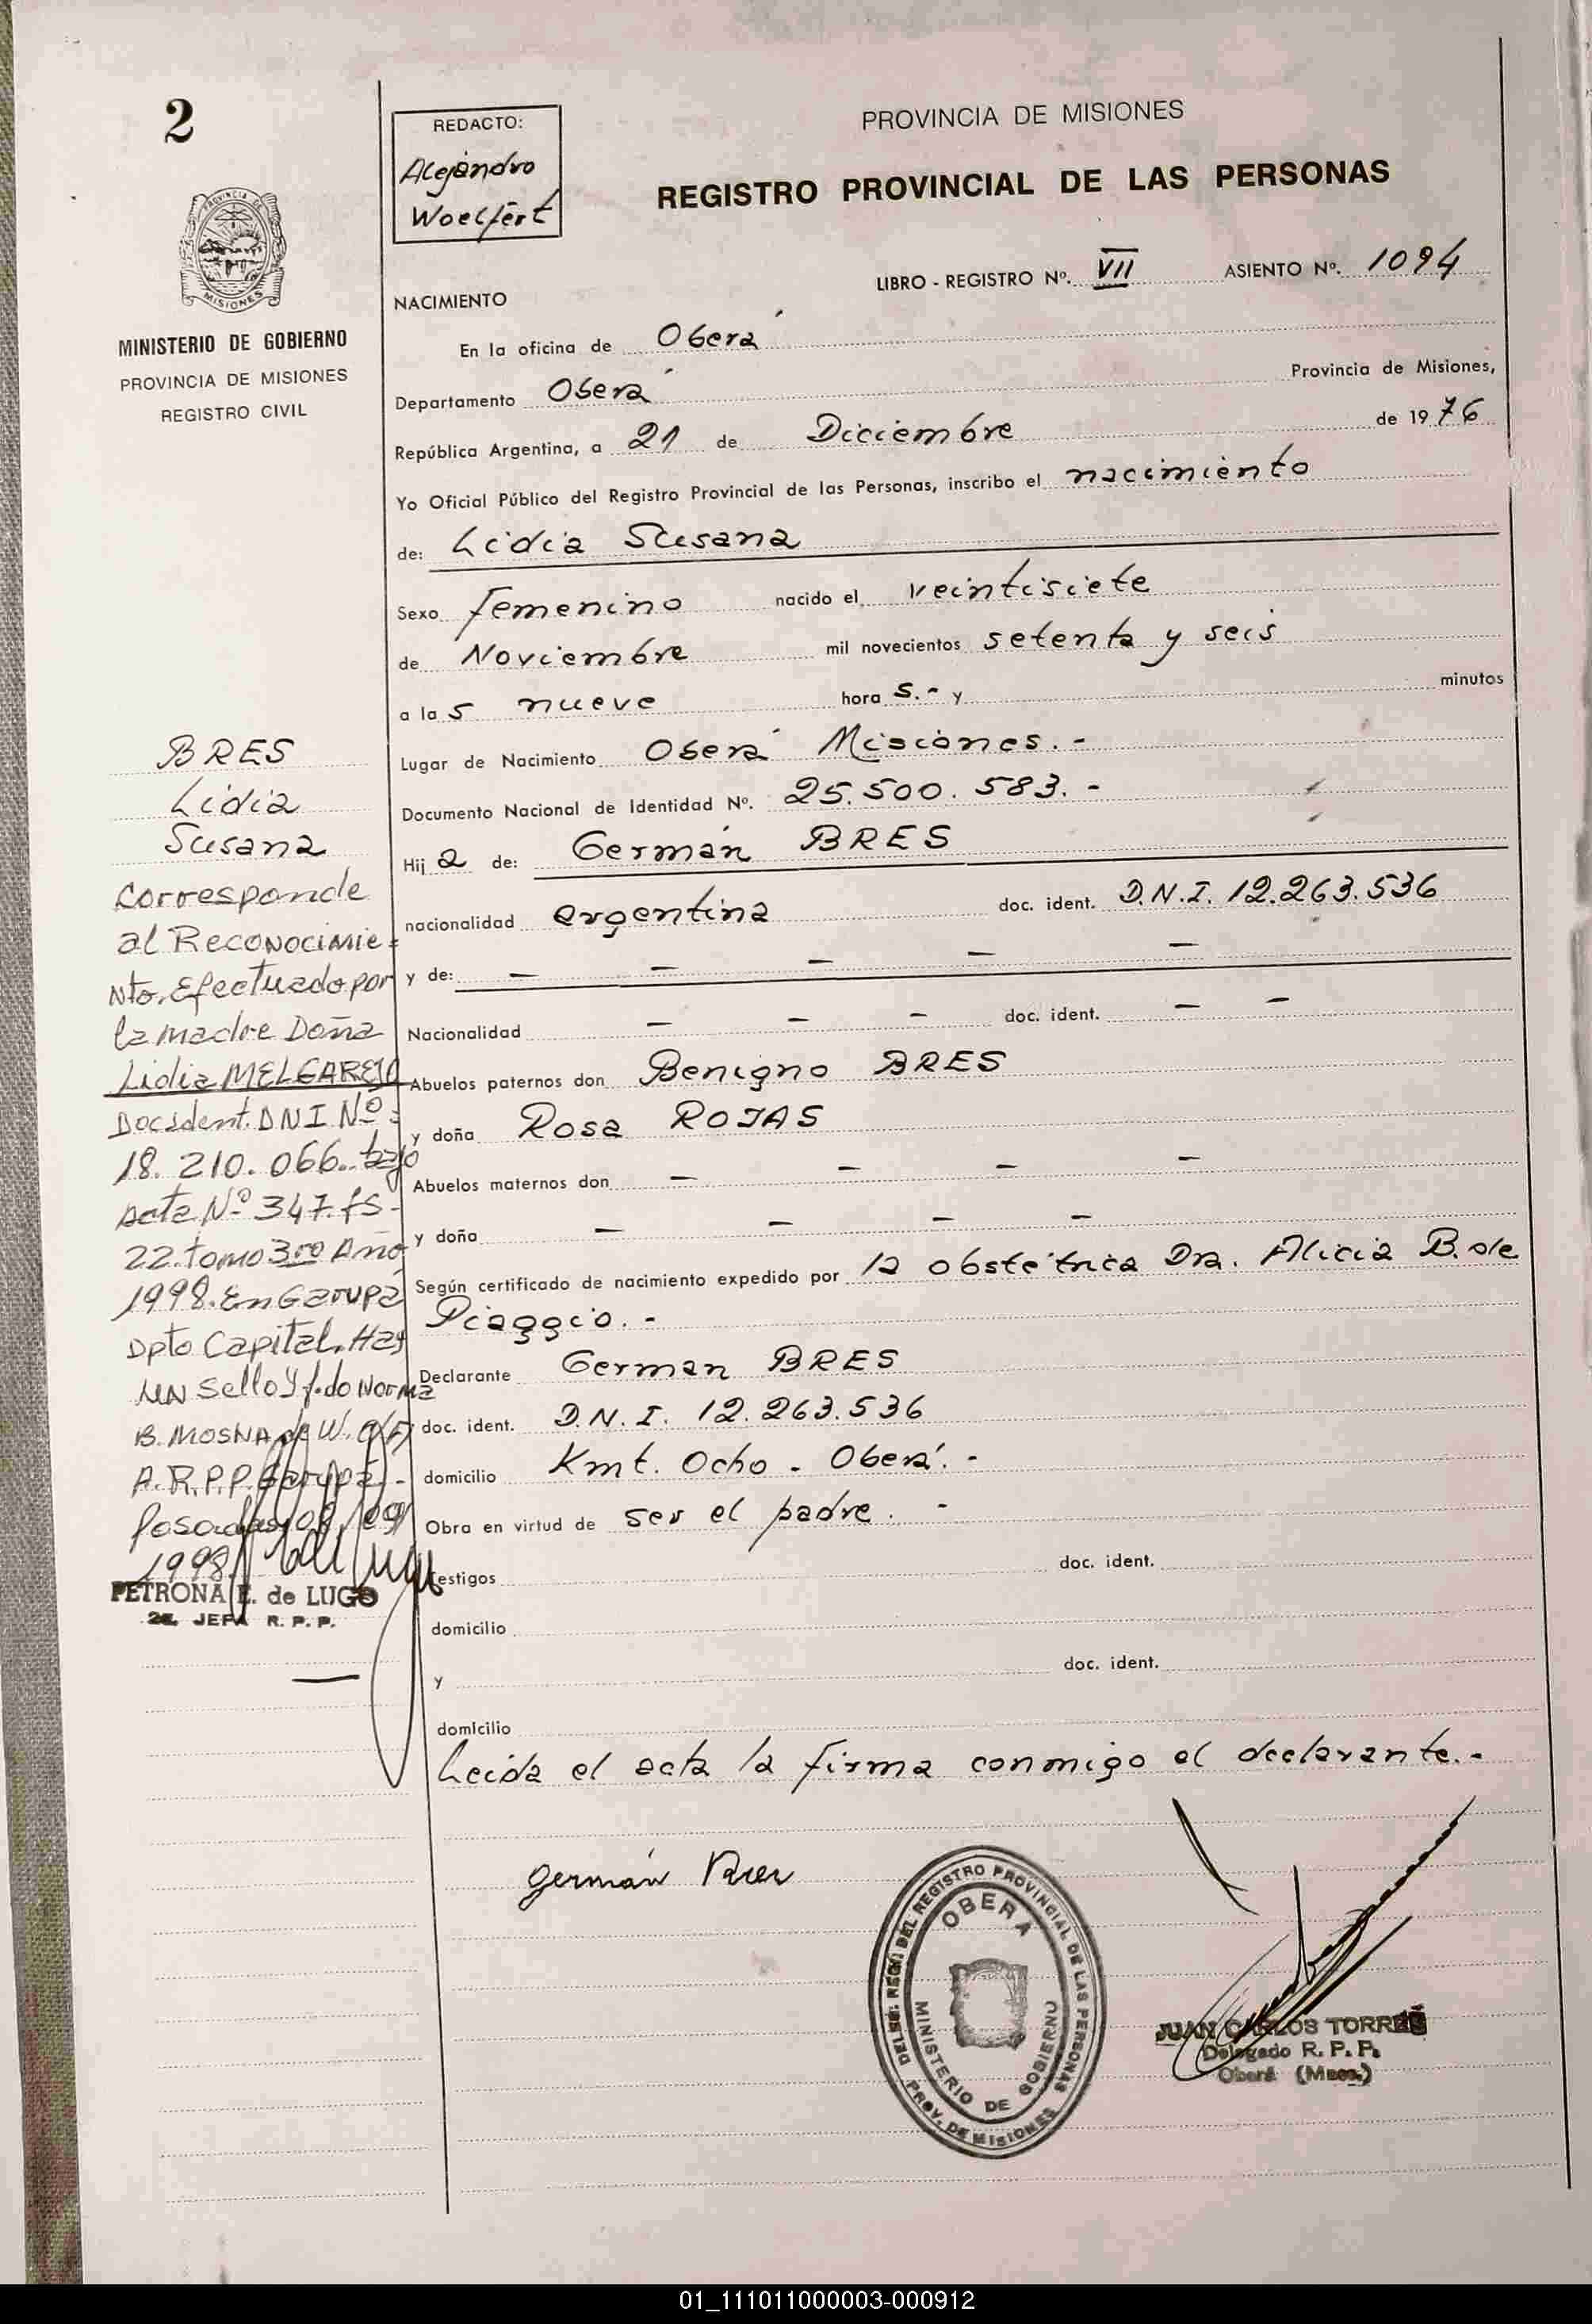 2
REDACTO:
Alejandro
Woelfert
PROVINCIA DE MISIONES
REGISTRO PROVINCIAL DE LAS PERSONAS
PROVINCIA DE
MISIONES
MINISTERIO DE GOBIERNO
PROVINCIA DE MISIONES
REGISTRO CIVIL
LIBRO - REGISTRO Nº. VII ASIENTO Nº. 1094
NACIMIENTO
En la oficina de Oberá
Departamento Oberá Provincia de Misiones,
República Argentina, a 21 de Diciembre de 1976
Yo Oficial Público del Registro Provincial de las Personas, inscribo el nacimiento
de: Lidia Susana
Sexo Femenino nacido el veintisiete
de Noviembre mil novecientos setenta y seis
a las nueve hora s.- y minutos
Lugar de Nacimiento Oberá Misiones.-
Documento Nacional de Identidad Nº. 25.500.583.-
Hija de: Germán BRES
nacionalidad argentina doc. ident. D.N.I. 12.263.536
y de: — — — — —
Nacionalidad — — — doc. ident. — —
Abuelos paternos don Benigno BRES
y doña Rosa ROJAS
Abuelos maternos don — — — —
y doña — — — —
Según certificado de nacimiento expedido por la obstétrica Dra. Alicia B. de
Piaggio.-
Declarante German BRES
doc. ident. D.N.I. 12.263.536
domicilio Kmt. Ocho - Oberá.-
Obra en virtud de ser el padre. -
Testigos doc. ident.
domicilio
y doc. ident.
domicilio
Leida el acta la firma conmigo el declarante.-
BRES
Lidia
Susana
Corresponde
al Reconocimie=
nto. Efectuado por
la madre Doña
Lidia MELGAREJO
Doc Ident. DNI Nº:
18.210.066. bajo
Acta Nº 347. fs-
22. tomo 3ro Año
1998. En Garupá
Dpto Capital. Hay
un sello y f.do Norma
B. MOSNA de W. O(F)
A.R.P.P. Garupá -
Posadas, 08/09/
1998.
PETRONA E. de LUGO
2a. JEFA R. P. P.
Germán Bres
DEL REGISTRO PROVINCIAL DE LAS PERSONAS
OBERA
MINISTERIO DE GOBIERNO
PROV. DE MISIONES
JUAN CARLOS TORRES
Delegado R. P. P.
Oberá (Mnes.)
01_111011000003-000912